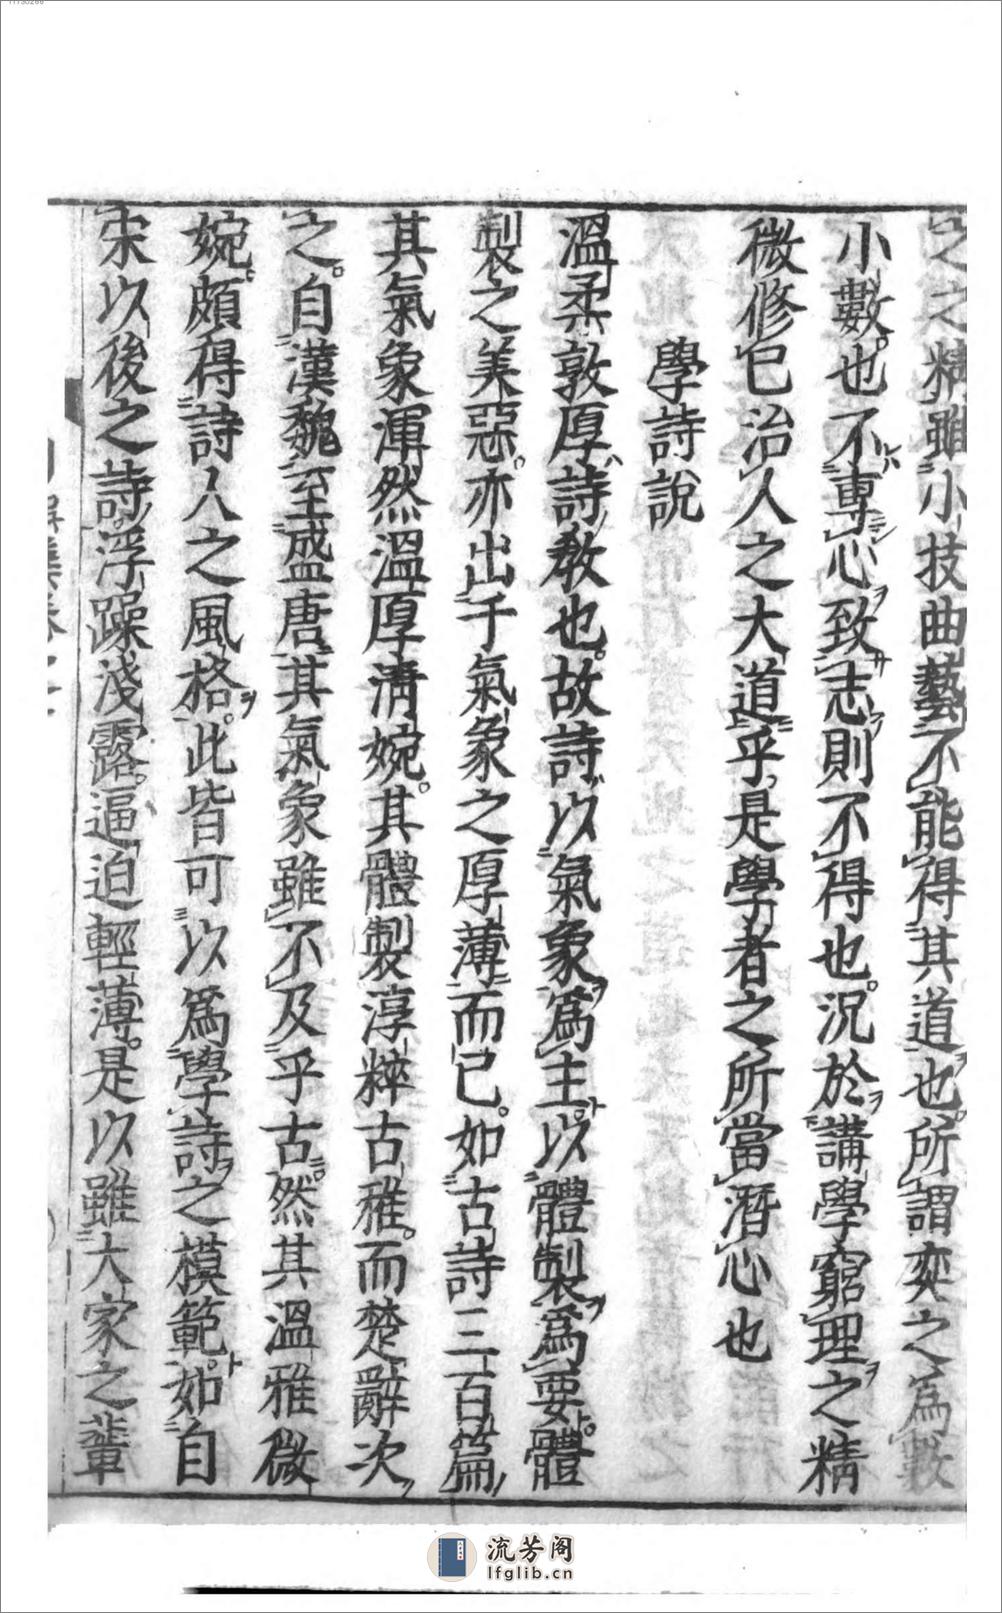 之之精雖小技曲藝不能得其道也。所謂奕之為數
小數也。不專心致志則不得也。況於講學窮理之精
微修已治人之大道乎。是學者之所當潛心也
學詩說
溫柔敦厚詩教也。故詩以氣象爲主。以體製爲要。體
製之美惡。亦出于氣象之厚薄而已。如古詩三百篇
其氣象渾然溫厚清婉。其體製淳粹古雅。而楚辭次
之。自漢魏至盛唐其氣象雖不及乎古。然其溫雅微
婉。頗得詩人之風格。此皆可以爲學詩之模範。如自
宋以後之詩。浮躁淺露。逼迫輕薄。是以雖大家之輩
流芳阁
lfglib.cn